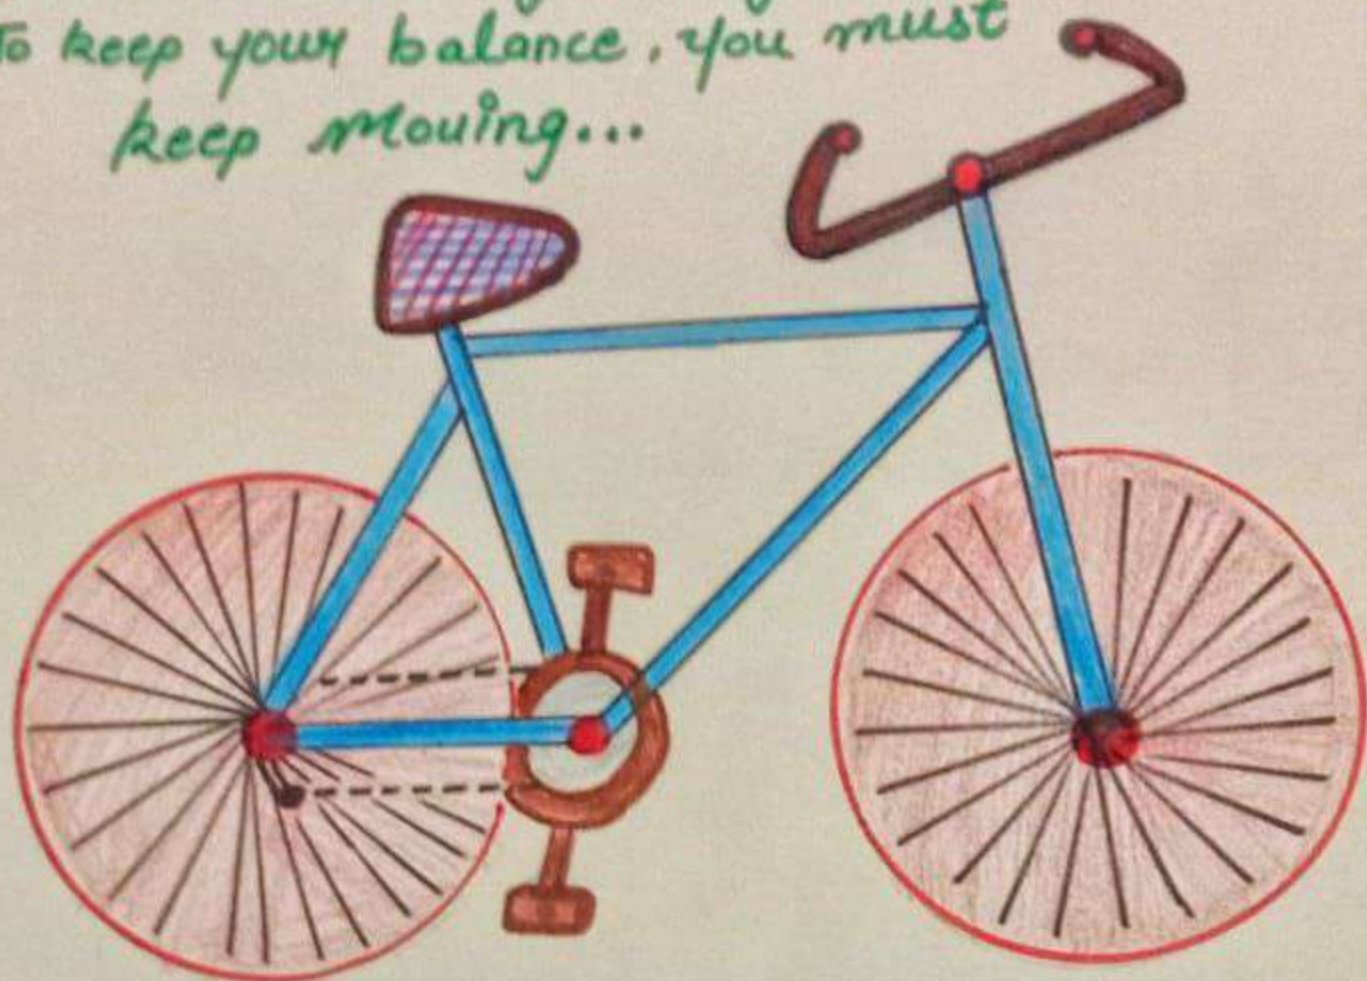 To keep your balance, you must
keep moving...